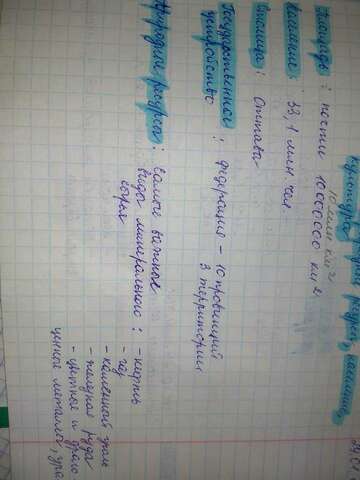 природные ресурсы, население,
культура
10 млн. км²
Площадь: почти 10000000 км²
Население: 33,1 млн. чел.
Столица: Оттава
Государственное устройство: федерация – 10 провинций
3 территории
Природные ресурсы: самые важные
виды минерального: - нефть
сырья - газ
- каменный уголь
- железная руда
- цветные и драго-
ценные металлы, ура